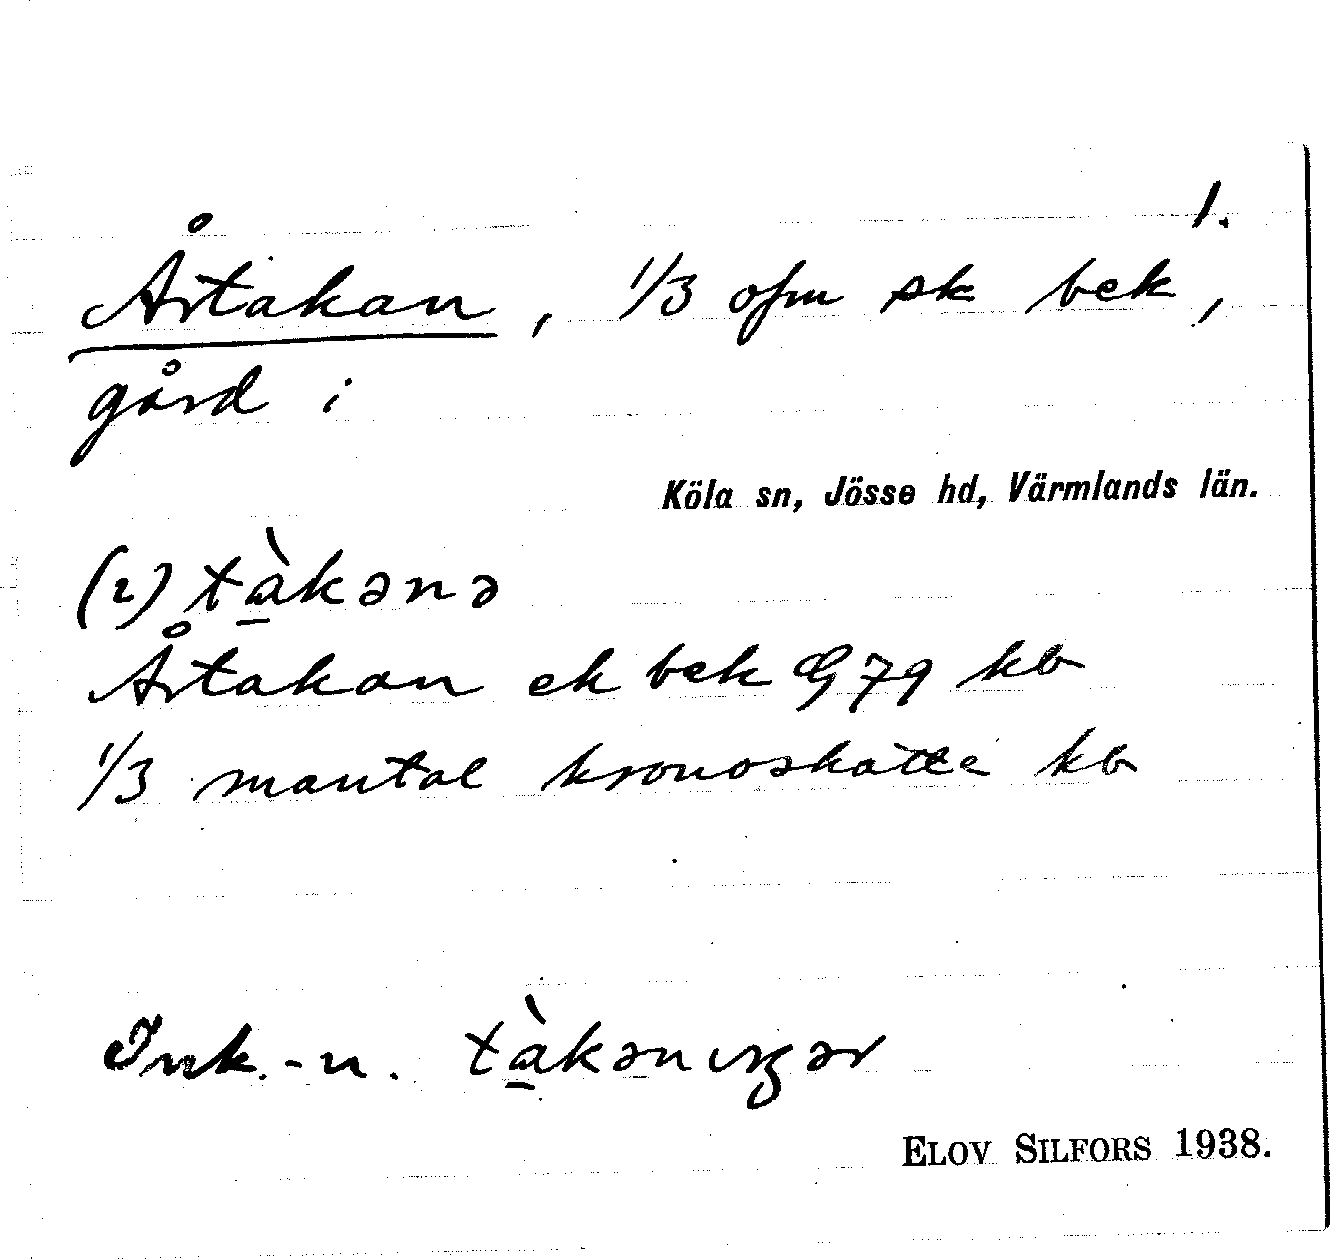 1.
Årtakan, 1/3 ofm sk bek,
gård i
Köla sn, Jösse hd, Värmlands län.
(i) tà̱kənə
Årtakan ek bek G 79 kb
1/3 mantal kronoskatte kb
Ink.-n. tà̱kənıŋgər
ELOV SILFORS 1938.